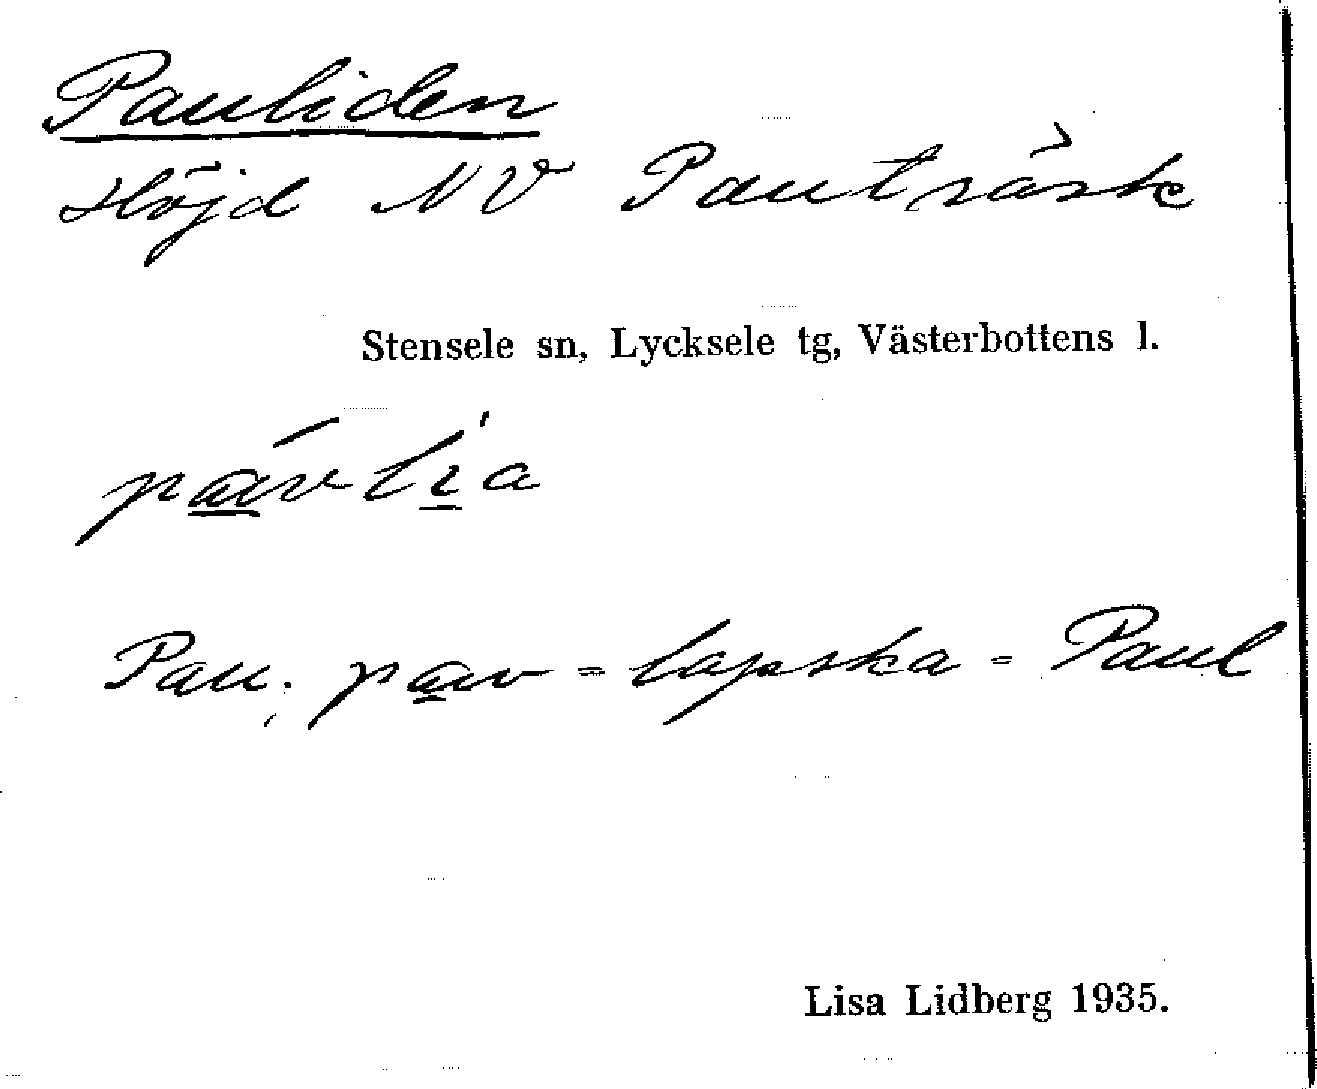 Pauliden
Höjd NV Pauträsk
Stensele sn, Lycksele tg, Västerbottens l.
pávlia
Pau; pav = lapska = Paul
Lisa Lidberg 1935.